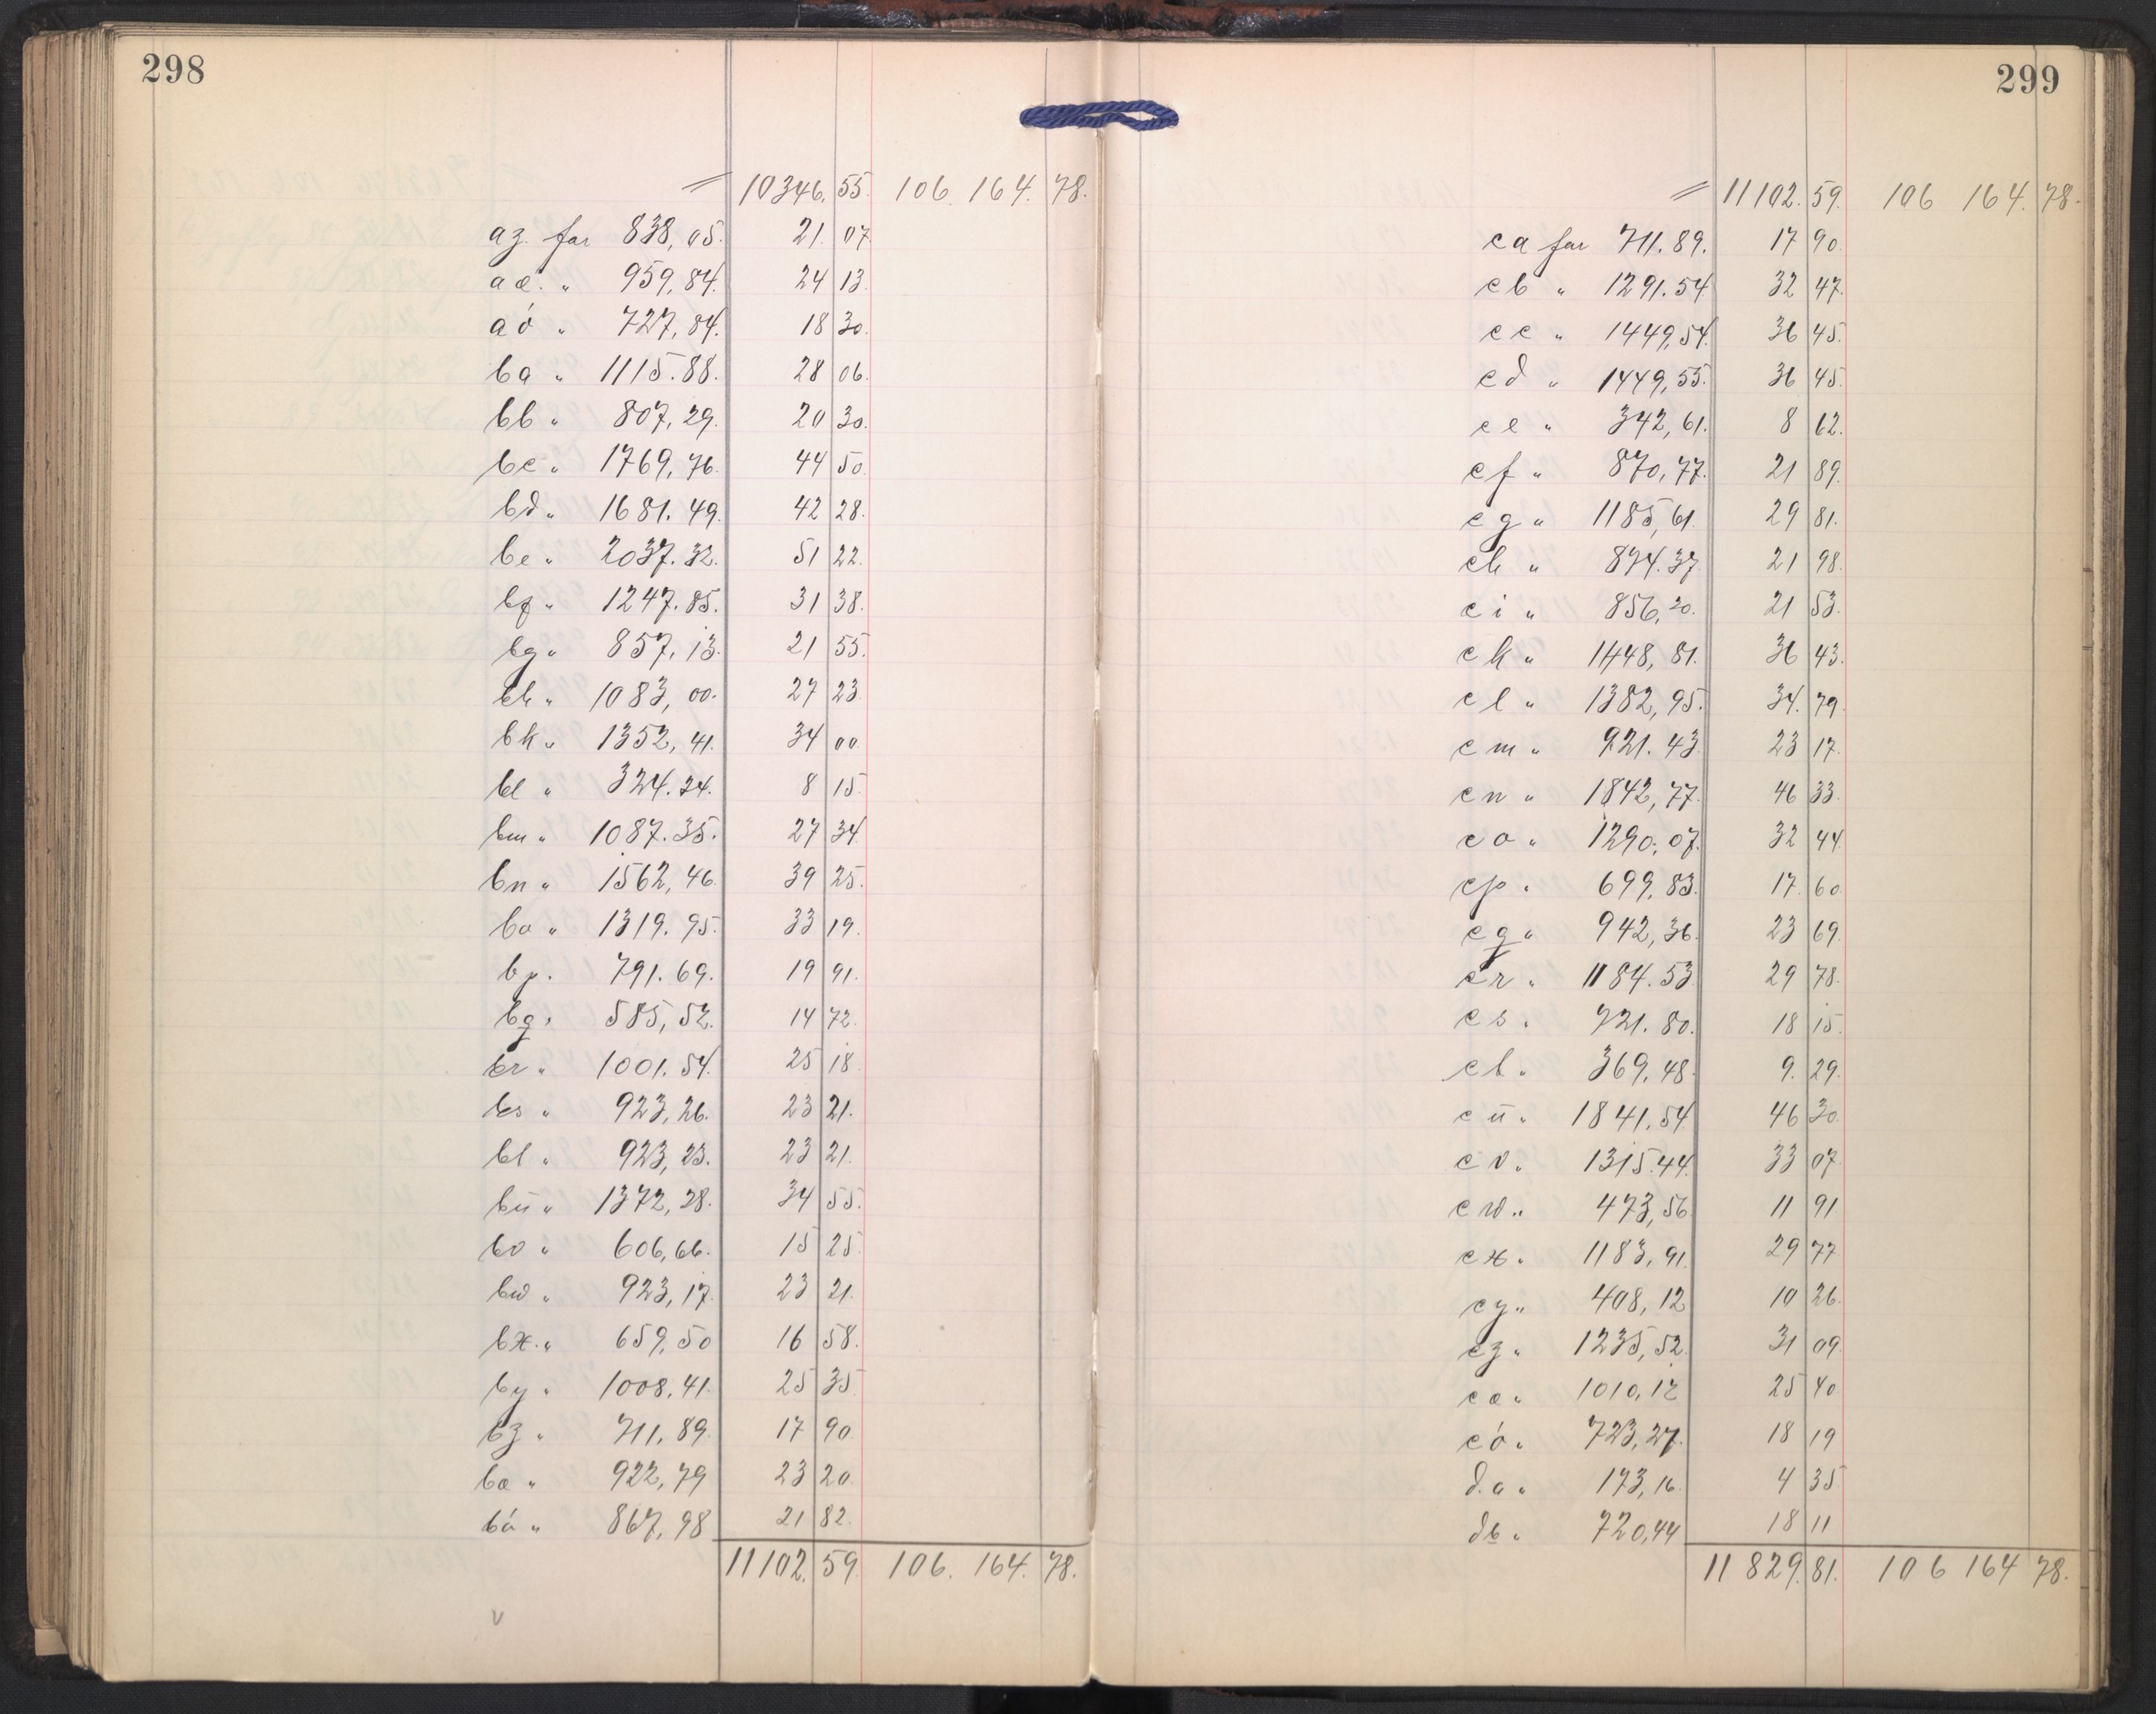 298
10346. 55. 106. 164. 78.
az. for 838,05. 21. 07
aæ. " 959,84. 24 13.
aó " 727,84. 18 30.
ba " 1115.88. 28 06.
bb " 807,29. 20 30.
bc " 1769,76. 44 50.
bd " 1681.49. 42 28.
be " 2037.32. 51 22.
bf " 1247.85. 31 38.
bg " 857,13. 21 55.
bh " 1083,00. 27 23.
bk " 1352,41. 34 00.
bl " 324.24. 8 15.
bm " 1087.35. 27 34.
bn " 1562,46. 39 25.
bo " 1319.95. 33 19.
bp. 791.69. 19 91.
bq " 585,52. 14 72.
br " 1001.54. 25 18.
bs " 923,26. 23 21.
bt " 923,23. 23 21.
bū " 1372,28. 34 55.
bv " 606,66. 15 25.
bw " 923,17. 23 21.
bx " 659,50 16 58.
by " 1008,41. 25 35.
bz " 711,89. 17 90.
bæ " 922,79 23 20.
bó " 867,98 21 82.
11102. 59. 106. 164. 78.
299
11102. 59. 106 164. 78.
ca for 711.89. 17 90.
cb " 1291.54. 32 47.
cc " 1449,54. 36 45.
cd " 1449,55. 36 45.
ce " 342,61. 8 62.
cf " 870,77. 21 89.
cg " 1185,61. 29 81.
ch " 874.37. 21 98.
ci " 856,20. 21 53.
ck " 1448,81. 36 43.
cl " 1382,95. 34. 79.
cm " 921.43 23 17.
cn " 1842,77. 46 33.
co " 1290,07. 32 44.
cp " 699,83. 17. 60.
cq " 942,36. 23 69.
cr " 1184.53 29 78.
cs " 721.80. 18 15.
ct " 369,48. 9. 29.
cū " 1841,54. 46 30.
cv " 1315.44. 33 07.
cw " 473,56 11 91
cx " 1183,91. 29 77
cy " 408,12 10 26.
cz " 1235,52. 31 09.
cæ " 1010,12 25 40.
có " 723,27. 18 19
d.a " 173,16. 4 35
db " 720,44 18 11
11 829. 81. 106 164 78.